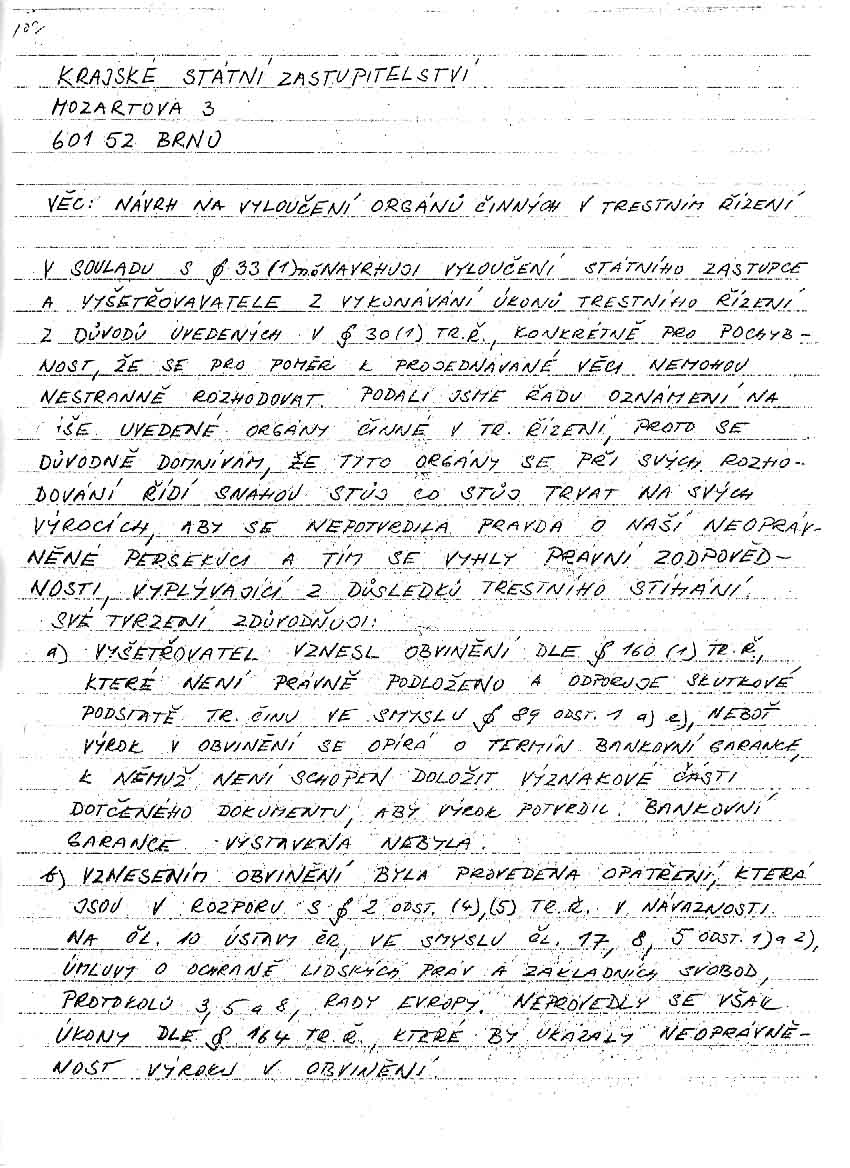 KRAJSKÉ STÁTNÍ ZASTUPITELSTVÍ
MOZARTOVA 3
601 52 BRNO
VĚC: NÁVRH NA VYLOUČENÍ ORGÁNŮ ČINNÝCH V TRESTNÍM ŘÍZENÍ
V SOULADU S § 33 (1) NAVRHUJI VYLOUČENÍ STÁTNÍHO ZÁSTUPCE
A VYŠETŘOVAVATELE Z VYKONÁVÁNÍ ÚKONŮ TRESTNÍHO ŘÍZENÍ
Z DŮVODŮ ÚVEDENÝCH V § 30 (1) TR.Ř., KONKRÉTNĚ PRO POCHYB-
NOST, ŽE SE PRO POMĚR K PROJEDNÁVANÉ VĚCI NEMOHOU
NESTRANNĚ ROZHODOVAT. PODALI JSME ŘADU OZNÁMENÍ NA
ÍŠE UVEDENÉ ORGÁNY ČINNÉ V TR. ŘÍZENÍ, PROTO SE
DŮVODNĚ DOMNÍVÁM, ŽE TYTO ORGÁNY SE PŘI SVÝCH ROZHO-
DOVÁNÍ ŘÍDÍ SNAHOU STŮJ CO STŮJ TRVAT NA SVÝCH
VÝROCÍCH, ABY SE NEPOTVRDILA PRAVDA O NAŠÍ NEOPRÁV-
NĚNÉ PERSEKUCI A TÍM SE VYHLY PRÁVNÍ ZODPOVĚD-
NOSTI, VYPLÝVAJÍCÍ Z DŮSLEDKŮ TRESTNÍHO STÍHÁNÍ.
SVÉ TVRZENÍ ZDŮVODŇUJI:
a) VYŠETŘOVATEL VZNESL OBVINĚNÍ DLE § 160 (1) TR.Ř.,
KTERÉ NENÍ PRÁVNĚ PODLOŽENO A ODPORUJE SKUTKOVÉ
PODSTATĚ TR. ČINU VE SMYSLU § 89 ODST. 1 a) e), NEBOŤ
VÝROK V OBVINĚNÍ SE OPÍRÁ O TERMÍN BANKOVNÍ GARANCE,
K NĚMUŽ NENÍ SCHOPEN DOLOŽIT VÝZNAKOVÉ ČÁSTI
DOTČENÉHO DOKUMENTU, ABY VÝROK POTVRDIL. BANKOVNÍ
GARANCE VYSTAVENA NEBYLA.
b) VZNESENÍM OBVINĚNÍ BYLA PROVEDENA OPATŘENÍ, KTERÁ
JSOU V ROZPORU S § 2 ODST. (4), (5) TR.Ř. V NÁVAZNOSTI
NA ČL. 10 ÚSTAVY ČR, VE SMYSLU ČL. 17, 8, 5 ODST. 1) a 2),
ÚMLUVY O OCHRANĚ LIDSKÝCH PRÁV A ZÁKLADNÍCH SVOBOD,
PROTOKOLŮ 3, 5 a 8, RADY EVROPY. NEPROVEDLY SE VŠAK
ÚKONY DLE § 164 TR.Ř., KTERÉ BY UKÁZALY NEOPRÁVNĚ-
NOST VÝROKU V OBVINĚNÍ.